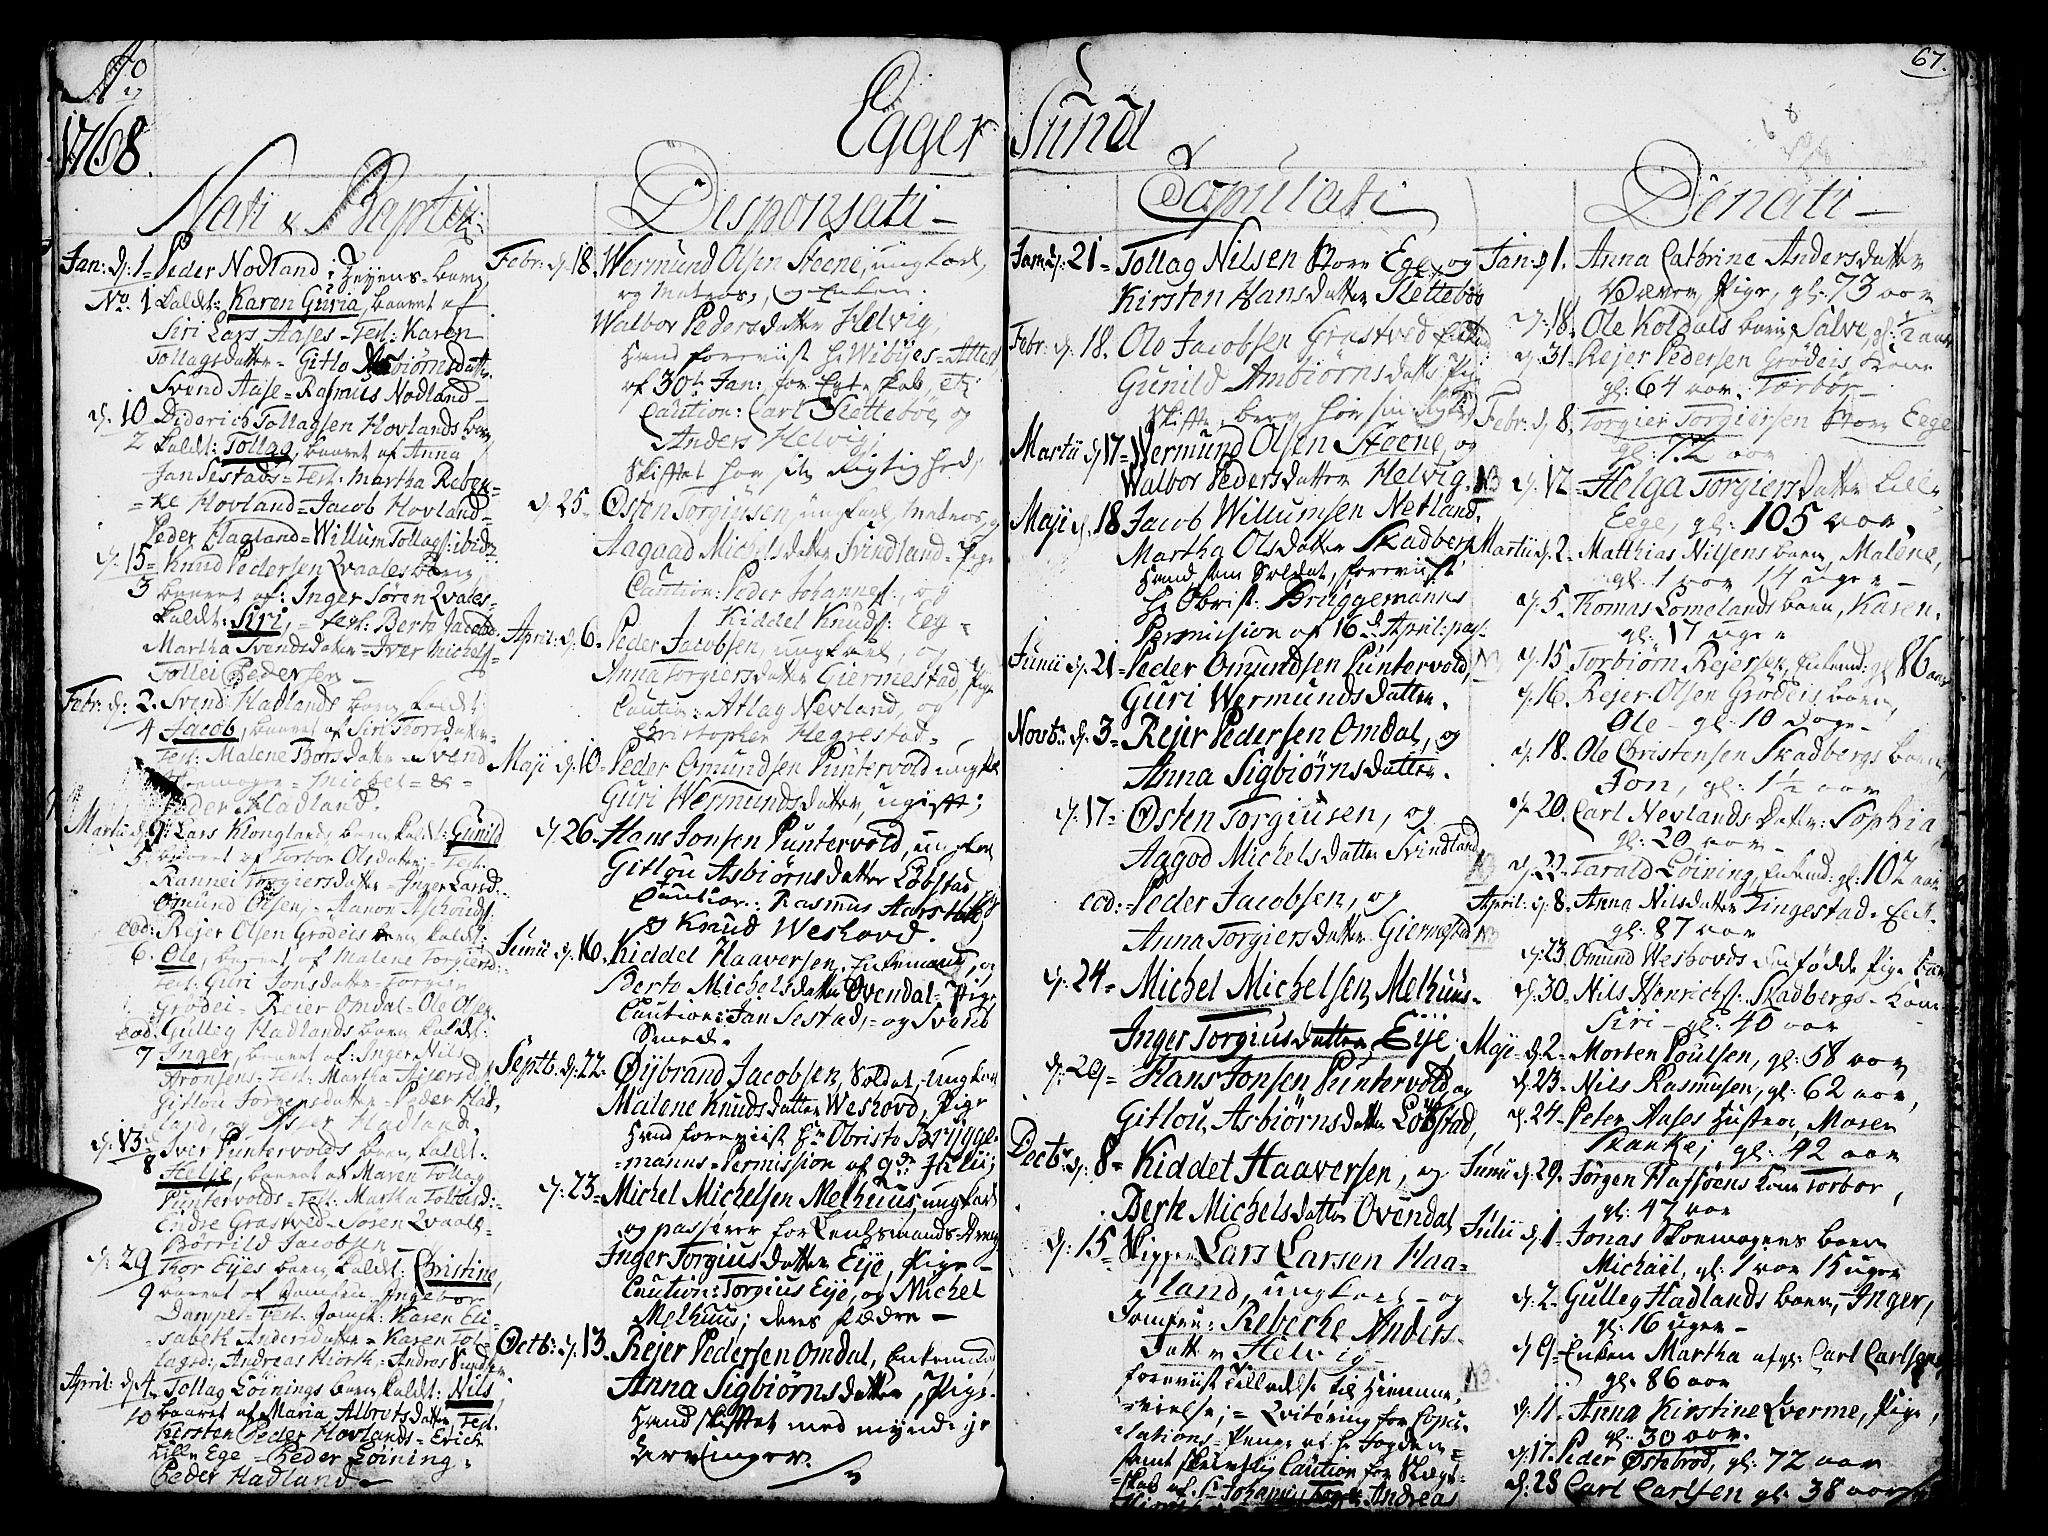 67.
Ao
1768.
Egger Sund
Nati & Baptiz:
Jan: d: 1 = Peder Nodland i Heyens barn
No. 1 kaldt: Karen Guria, baaret af
Siri Lars Aases = Test: Karen
Tollagsdatter = Gitlo Asbiörnsdatter
Svend Aase = Rasmus Nodland
d. 10 Diderich Tollagsen Hovlands barn
2 kaldt: Tollag, baaret af Anna
Jan Sestads = Test: Martha Reben=
=ke Hovland = Jacob Hovland =
Peder Hagland = Willum Tollags: ibid:
d. 15 = Knud Pedersen Qvaales barn
3 baaret af: Inger Sören Qvales =
kaldt: Siri, = Test: Berte Jacobs
Martha Svendsdatter = Iver Michels
Tollei Pedersen
Febr: d: 2. Svend Hadlands barn kaldt
4 Jacob, baaret af Siri Torsdatter
Test: Malene Torsdatter = Svend
= Michel = & =
Peder Hadland.
Martii d. 9: Lars Klonglands barn kaldt: Gunild
5. baaret af Torbor Olsdatter = Test:
Rannei Torgiersdatter = Inger Lars d:
Omund Olsen = Aanon
eod: Rejer Olsen Grödeis barn kaldt:
6. Ole, baaret af Malene Torgiersd:
Test: Guri Jonsdatter = Torgier
Grödei = Reier Omdal = Ole Olsen
eod. Gulleg Hadlands barn kaldt:
7 Inger, baaret af: Inger Nils
Aronsens = Test: Martha
Gitlou Jorgensdatter = Peder Had=
land, og Asser Hadland.
d. 13. Iver Puntervolds barn, kaldt:
8 Helje, baaret af Maren Tollag
Puntervolds = Test: Martha Tollagd: =
Endre Grasved = Sören Qvaale =
Börrild Jacobsen
d. 29 Thor Eijes barn, kaldt: Christine,
9 baaret af Jomfru Ingebor
Dampe = Test: Jomf: Karen Eli=
=sabeth Andersdatter = Karen Tol=
lagsd: Andreas Hiorth = Andreas Sund
April: d. 4. Tollag Löinings barn kaldt: Nils
10 baaret af Maria Albretsdatter Test.
Kirsten Peder Hovlands = Erich
Lille Ege = Peder Löining =
Peder Hadland
Desponsati
Febr: d. 18. Wermund Olsen Steene, ungkarl
og Matros, og
Walbor Pedersdatter Helvig,
Hand foreviist H: Wibyes = Attest
af 30t Jan: for Egteskab, etc:
Caution: Carl Sletteböe, og
Anders Helvig;
Skifftet har sin Rigtighed,
d. 25 = Østen Torgiusen, ungkarl, Matros, og
Aagaad Michelsdatter Svindland = Pige
Caution: Peder Johannes:, og
Kiddel Knuds: Eeg =
April: d. 6. Peder Jacobsen, ungkarl, og
Anna Torgiersdatter Giermestad Pige
Caution: Atlag Nevland, og
Christopher Hegrestad =
Maji d. 10 = Peder Omundsen Puntervold ungkarl
Guri Wermundsdatter, ugift;
d. 26 = Hans Jonsen Puntervold, ungkarl
Gitlou Asbiörnsdatter Löbstad
Caution: Rasmus Aarstad
& Knud Weshovd.
Junii d. 16 = Kiddel Haaversen, Enkemand, og
Berte Michelsdatter Ovendal = Pige
Caution: Jan Sestad, = og Svend
Smed.
Septb. d. 22. Öijbrand Jacobsen, Soldat, ungkarl
Malene Knudsdatter Weshovd, Pige
Hand foreviist Hr. Obriste Brügge=
=manns = Permission af 9de Julij
d. 23 = Michel Michelsen Melhuus, ungkarl
og passerer for Lensmands = Dreng
Inger Torgiusdatter Eije, Pige =
Caution: Torgius Eije, og Michel
Melhuus; deres Fædre =
Octb: d. 13. Rejer Pedersen Omdal, Enkemand
Anna Sigbiörnsdatter, Pige.
Hand skifftet med myndige
Arvinger.
Copulati
Jan: d: 21 = Tollag Nilsen Store Ege, og
Kirsten Hansdatter Sletteböe
Febr: d. 18. Ole Jacobsen Grastved Enkem
Gunild Ambiörnsdatter Pige
Skiftebrev har sin Rigtighed
Martii d. 17 = Wermund Olsen Steene, og
Walbor Pedersdatter Helvig.
Maji d. 18 Jacob Willumsen Netland
Martha Olsdatter Skadberg
Hand som Soldat, foreviist
H: Obrist: Brüggemanns
Permission af 16de April: pass:
Junii d. 21 = Peder Omundsen Puntervold,
Guri Wermundsdatter.
Novb: d. 3 = Rejer Pedersen Omdal, og
Anna Sigbiörnsdatter.
d. 17 = Østen Torgiusen, og
Aagod Michelsdatter Svindland
eod: = Peder Jacobsen, og
Anna Torgiersdatter Giermestad
d. 24 = Michel Michelsen Melhuus =
Inger Torgiusdatter Eije.
d: 29 = Hans Jonsen Puntervold, og
Gitlou Asbiörnsdatter Löbstad,
Decbr: d. 8 = Kiddel Haaversen, og
Berte Michelsdatter Ovendal
d. 15 Skipper Lars Larsen Haa=
land, ungkarl = og
Jomfru: Rebecke Anders=
Datter Helvig =
foreviist Tilladelse til Hiemme,
vielse; = Qvitering for Copu=
lations = Penge af H: Fogden =
samt skriftlig Caution for Slægt=
=skab af Sr. Johannes Andreas
Denati
Jan: d. 1. Anna Cathrine Andersdatter
Væver, Pige, gl: 73 aar
d. 18. Ole Koldals barn Salve gl: ½ aar
d. 31. Rejer Pedersen Grödeis, Kone
gl: 64 aar. Torbor
Febr: d. 8. Torgier Torgiersen Store Eege
gl: 72 aar
NB d. 12 = Helga Torgiersdatter Lille
Eege, gl: 105 aar.
Martii d. 2 = Matthias Nilsens barn, Malene,
gl: 1 aar 14 uger =
d. 5. Thomas Lomelands barn, Karen.
gl: 17 uger
d. 15 Torbiörn Rejersen, Enkemd: gl: 86 aar
d. 16. Rejer Olsen Grödeis barn
Ole = gl: 10 Dage =
d. 18. Ole Christensen Skadbergs barn
Jon, gl: 1½ aar
d. 20. Carl Nevlands Datter: Sophia
gl: 20 aar
NB d. 22 = Tarald Löining, Enkemd: gl: 102 aar
April: d. 8. Anna Nilsdatter Tingestad = Enk.
gl: 87 aar
d: 23. Omund Weshovds födde Pige barn
d. 30. Nils Henrichs: Skadbergs = Kone
Siri = gl: 40 aar
Maji = d. 2 = Morten Poulsen, gl: 58 aar
d. 23 = Nils Rasmusen, gl: 62 aar,
d. 24. Peter Aases Hustroe, Maren
Skanke; gl: 42 aar
Junii d. 29. Jörgen Hafsöens Kone Torbor,
gl: 47 aar
Julii d. 1 = Jonas Skoemagers barn
Michael, gl: 1 aar 15 uger
d. 2. Gulleg Hadlands barn, Inger,
gl: 16 uger =
d. 9 = Enken Martha afgl: Carl Carlsens
gl: 86 aar
d. 11. Anna Kirstine Qverme, Pige,
gl: 30 aar.
d. 17. Peder Østebröd, gl: 72 aar
d. 28 Carl Carlsen gl: 38 aar